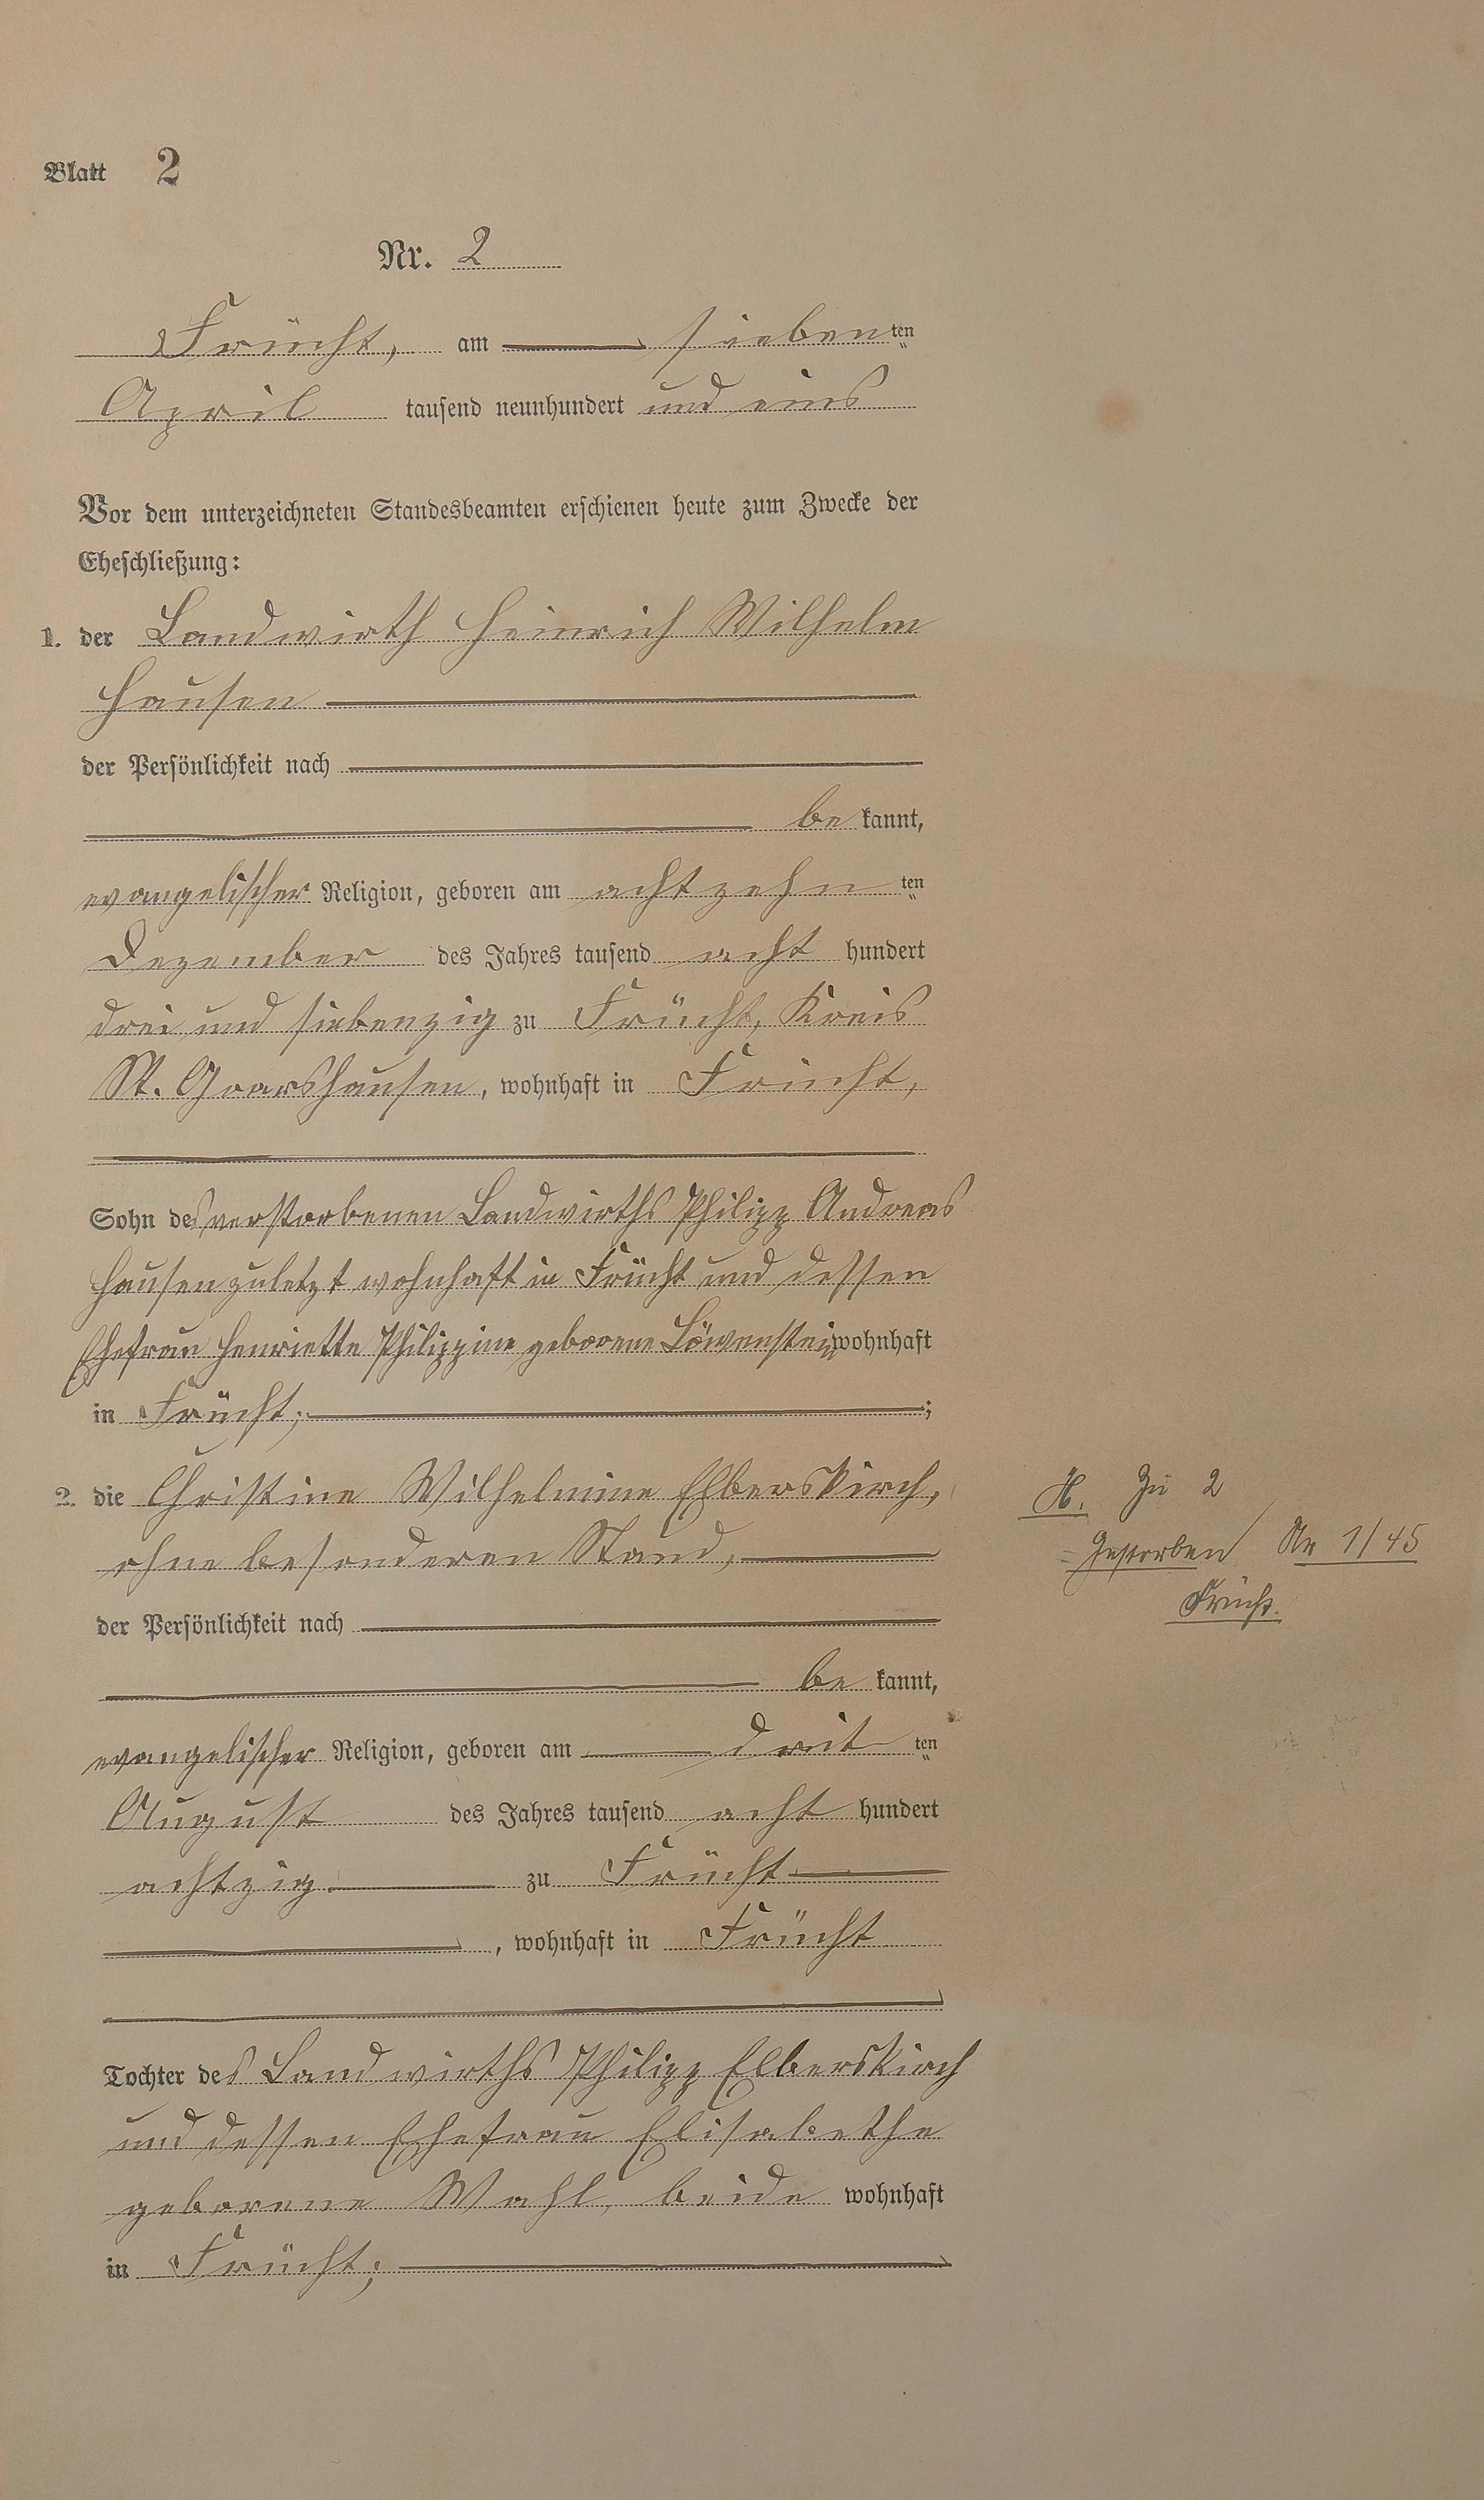 Blatt 2
Nr. 2
Frücht, am sieben ten
April tausend neunhundert und eins
Vor dem unterzeichneten Standesbeamten erschienen heute zum Zwecke der
Eheschließung:
1. der Landwirth Heinrich Wilhelm
Hausen
der Persönlichkeit nach
be kannt,
evangelischer Religion, geboren am achtzehn ten
Dezember des Jahres tausend acht hundert
drei und siebenzig zu Frücht, Kreis
St. Goarshausen, wohnhaft in Frücht,
Sohn des verstorbenen Landwirths Philipp Andreas
Hausen zuletzt wohnhaft in Frücht und dessen
Ehefrau Henriette Philippine geborene Löwenstein wohnhaft
in Frücht; ;
2. die Christine Wilhelmine Elberskirch,
ohne besonderen Stand,
der Persönlichkeit nach
be kannt,
evangelischer Religion, geboren am drit ten
August des Jahres tausend acht hundert
achtzig zu Frücht
, wohnhaft in Frücht
Tochter des Landwirths Philipp Elberskirch
und dessen Ehefrau Elisabethe
geborene Wahl, beide wohnhaft
in Frücht;
H. Zu 2
Gestorben Nr 1/45
Frücht.